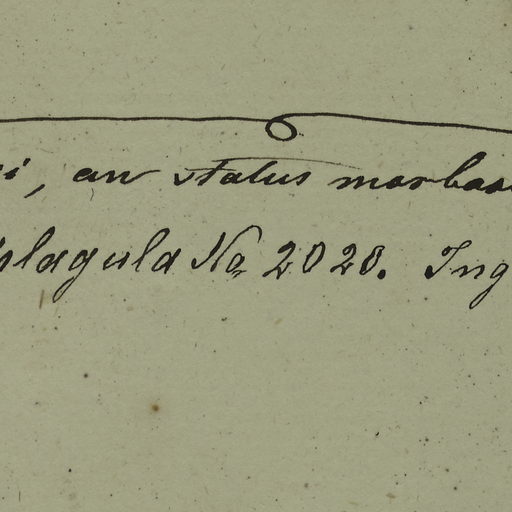 i, an status morboa
plagula No 2020. Ing